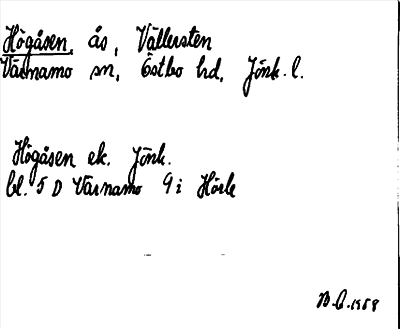 Högåsen, ås, Vällersten
Värnamo sn, Östbo hd, Jönk. l.
Högåsen ek. Jönk.
bl. 5 D Värnamo 9 i Hörle
B.O. 1958